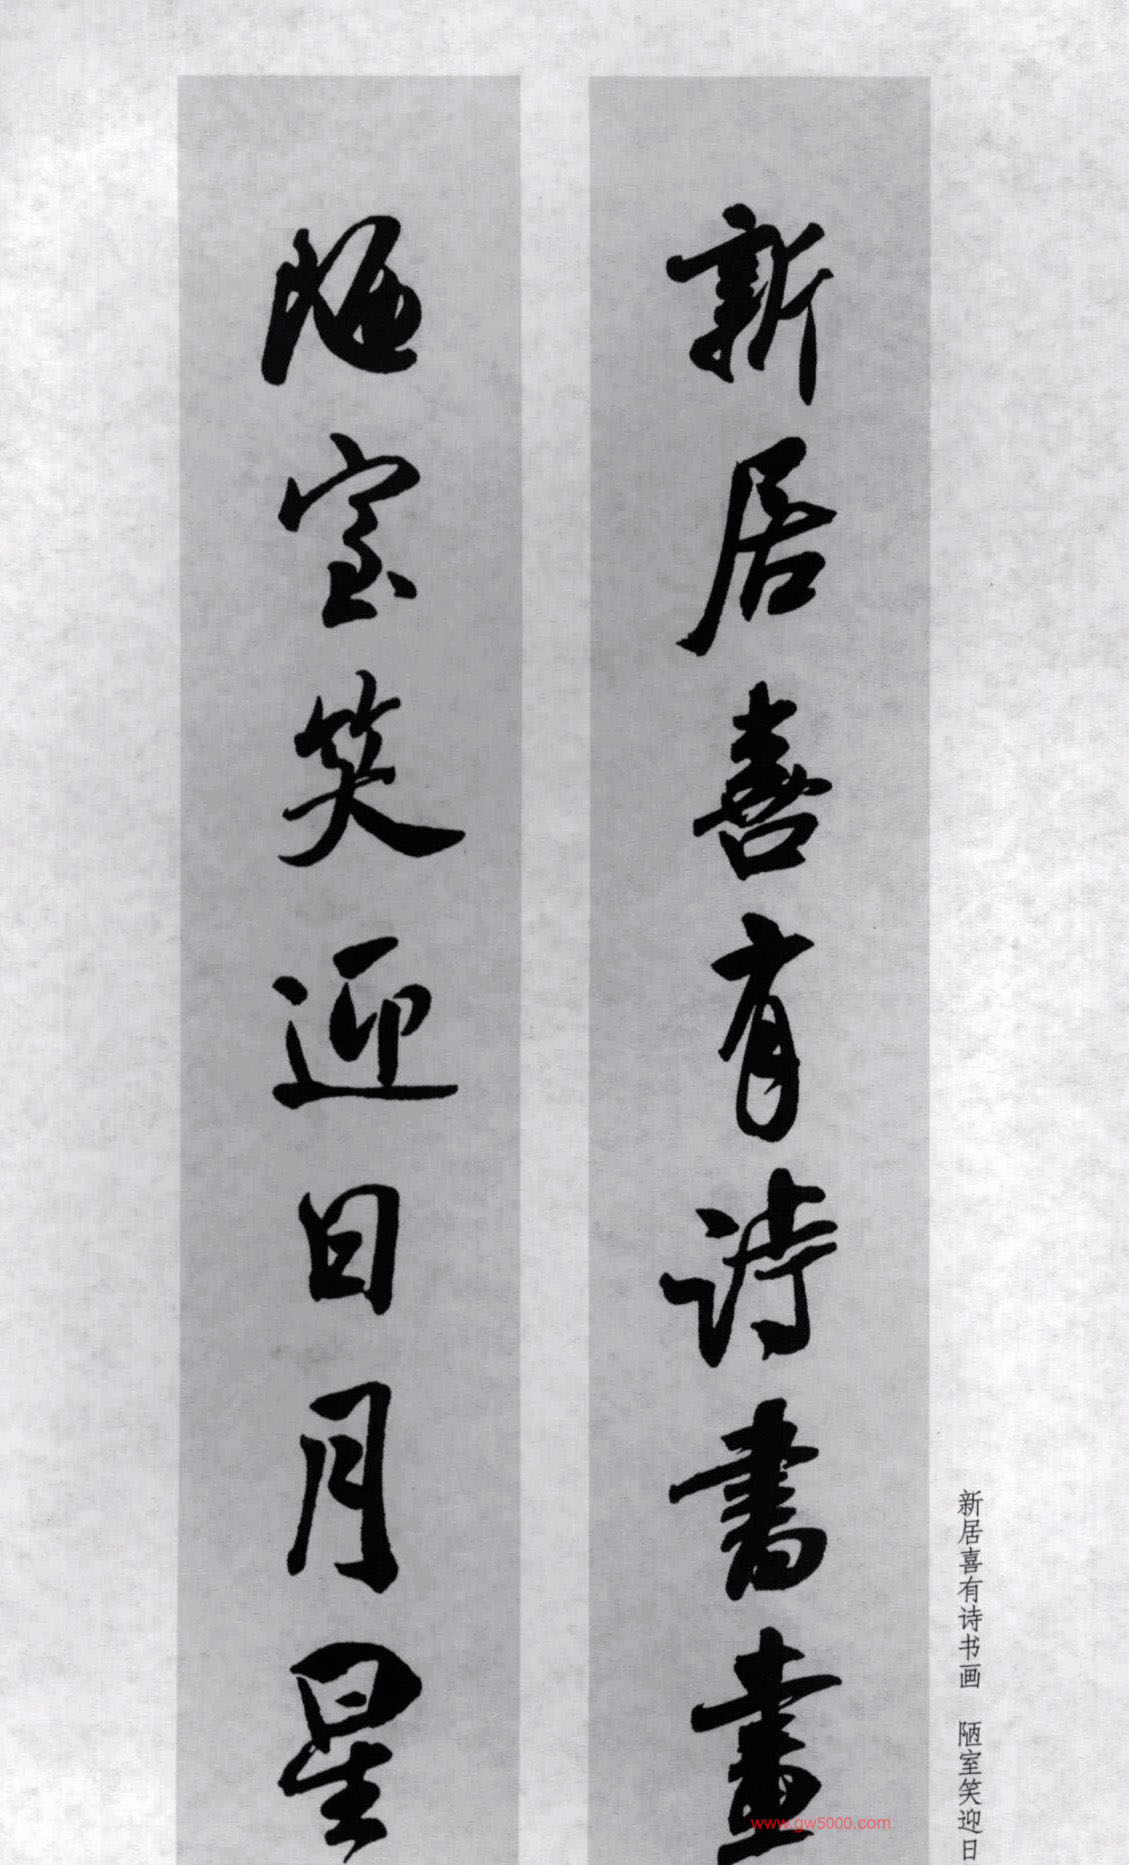 新居喜有詩書畫
陋室笑迎日月星
新居喜有诗书画 陋室笑迎日
www.gw5000.com